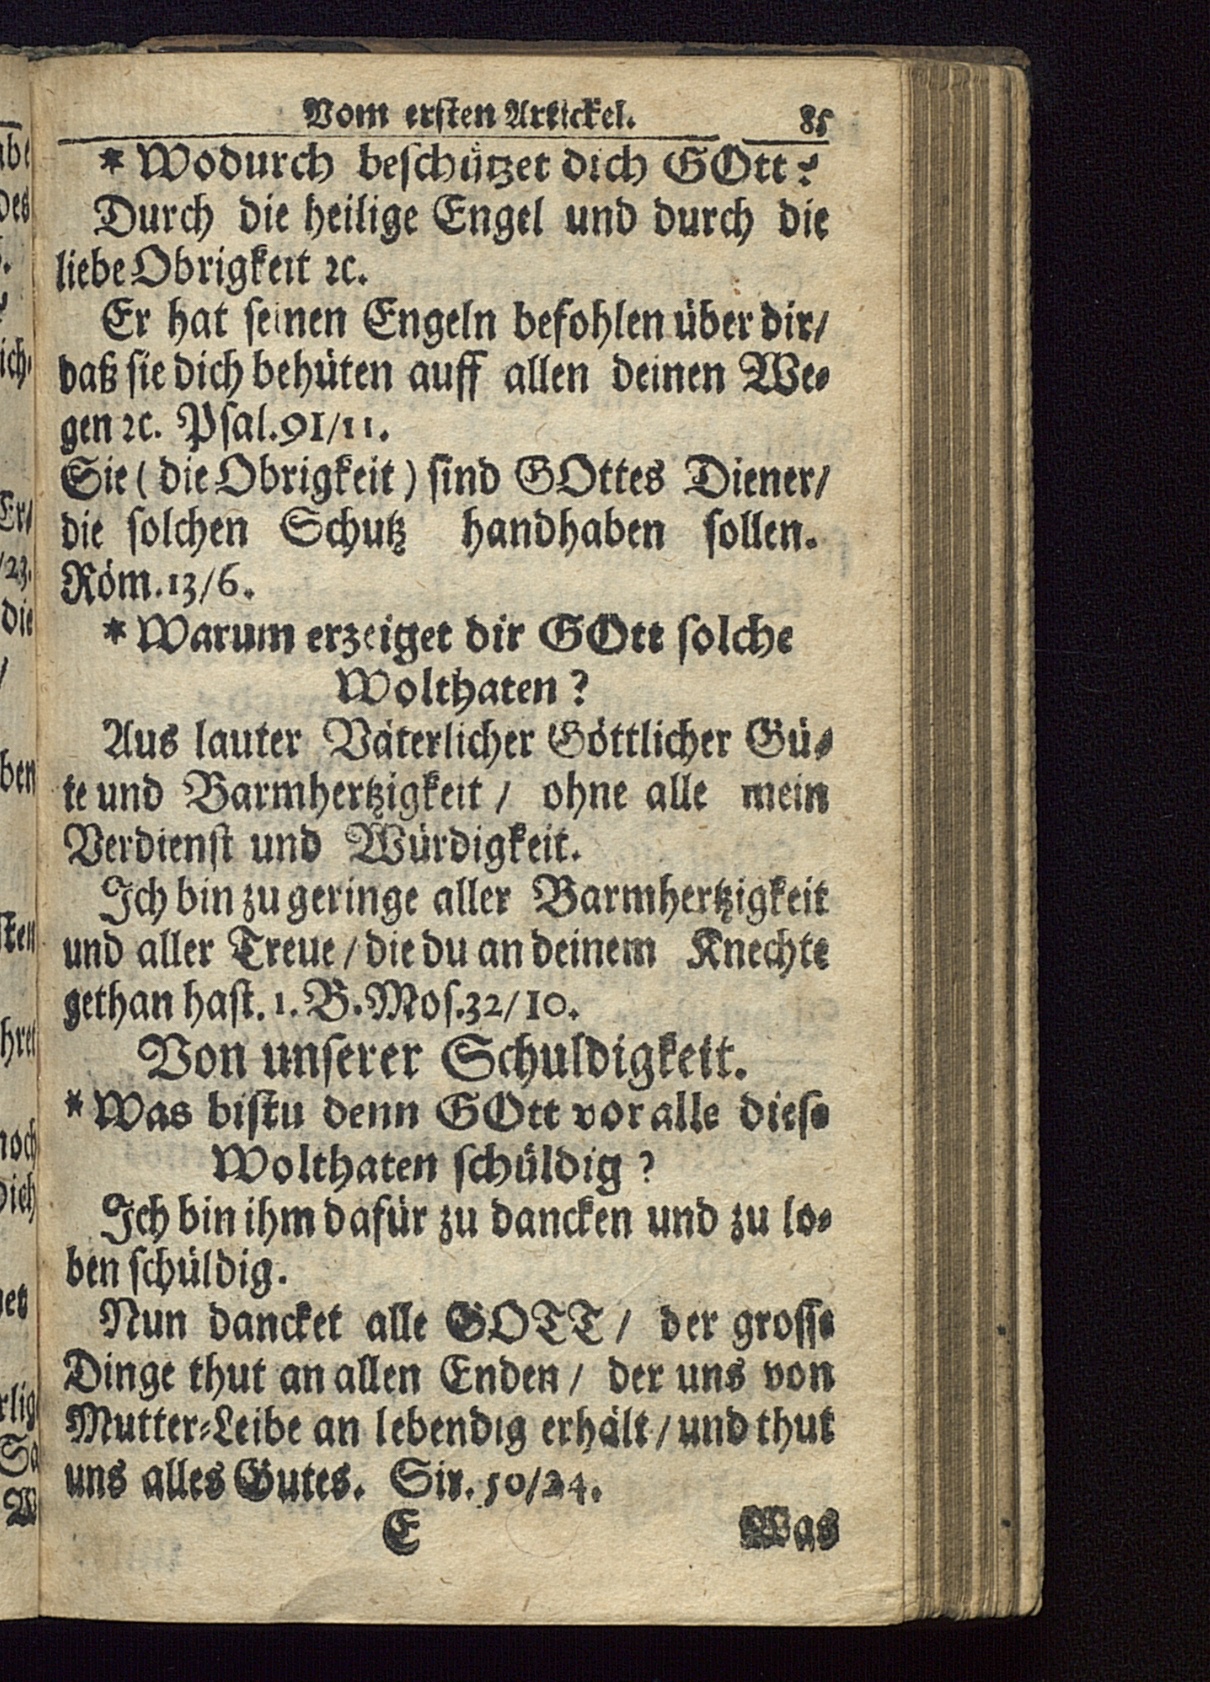 Vom ersten Artickel. 85
* Wodurch beschützet dich GOtt?
Durch die heilige Engel und durch die
liebe Obrigkeit ꝛc.
Er hat seinen Engeln befohlen über dir/
daß sie dich behüten auff allen deinen We-
gen ꝛc. Psal. 91/11.
Sie (die Obrigkeit) sind GOttes Diener/
die solchen Schutz handhaben sollen.
Röm. 13/6.
* Warum erzeiget dir GOtt solche
Wolthaten?
Aus lauter Väterlicher Göttlicher Gü-
te und Barmhertzigkeit / ohne alle mein
Verdienst und Würdigkeit.
Ich bin zu geringe aller Barmhertzigkeit
und aller Treue / die du an deinem Knechte
gethan hast. 1. B. Mos. 32/10.
Von unserer Schuldigkeit.
* Was bistu denn GOtt vor alle diese
Wolthaten schüldig?
Ich bin ihm dafür zu dancken und zu lo-
ben schüldig.
Nun dancket alle GOTT / der grosse
Dinge thut an allen Enden / der uns von
Mutter-Leibe an lebendig erhält / und thut
uns alles Gutes. Sir. 50/24.
E Was